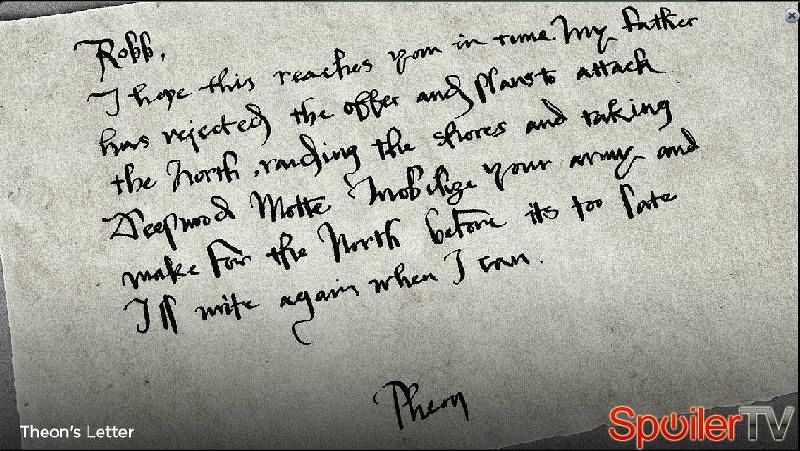 Robb,
I hope this reaches you in time. My father
has rejected the offer and plans to attack
the North, raiding the shores and taking
Deepwood Motte. Mobilize your army and
make for the North before its too late
I'll write again when I can.
Theon
Theon's Letter
SpoilerTV